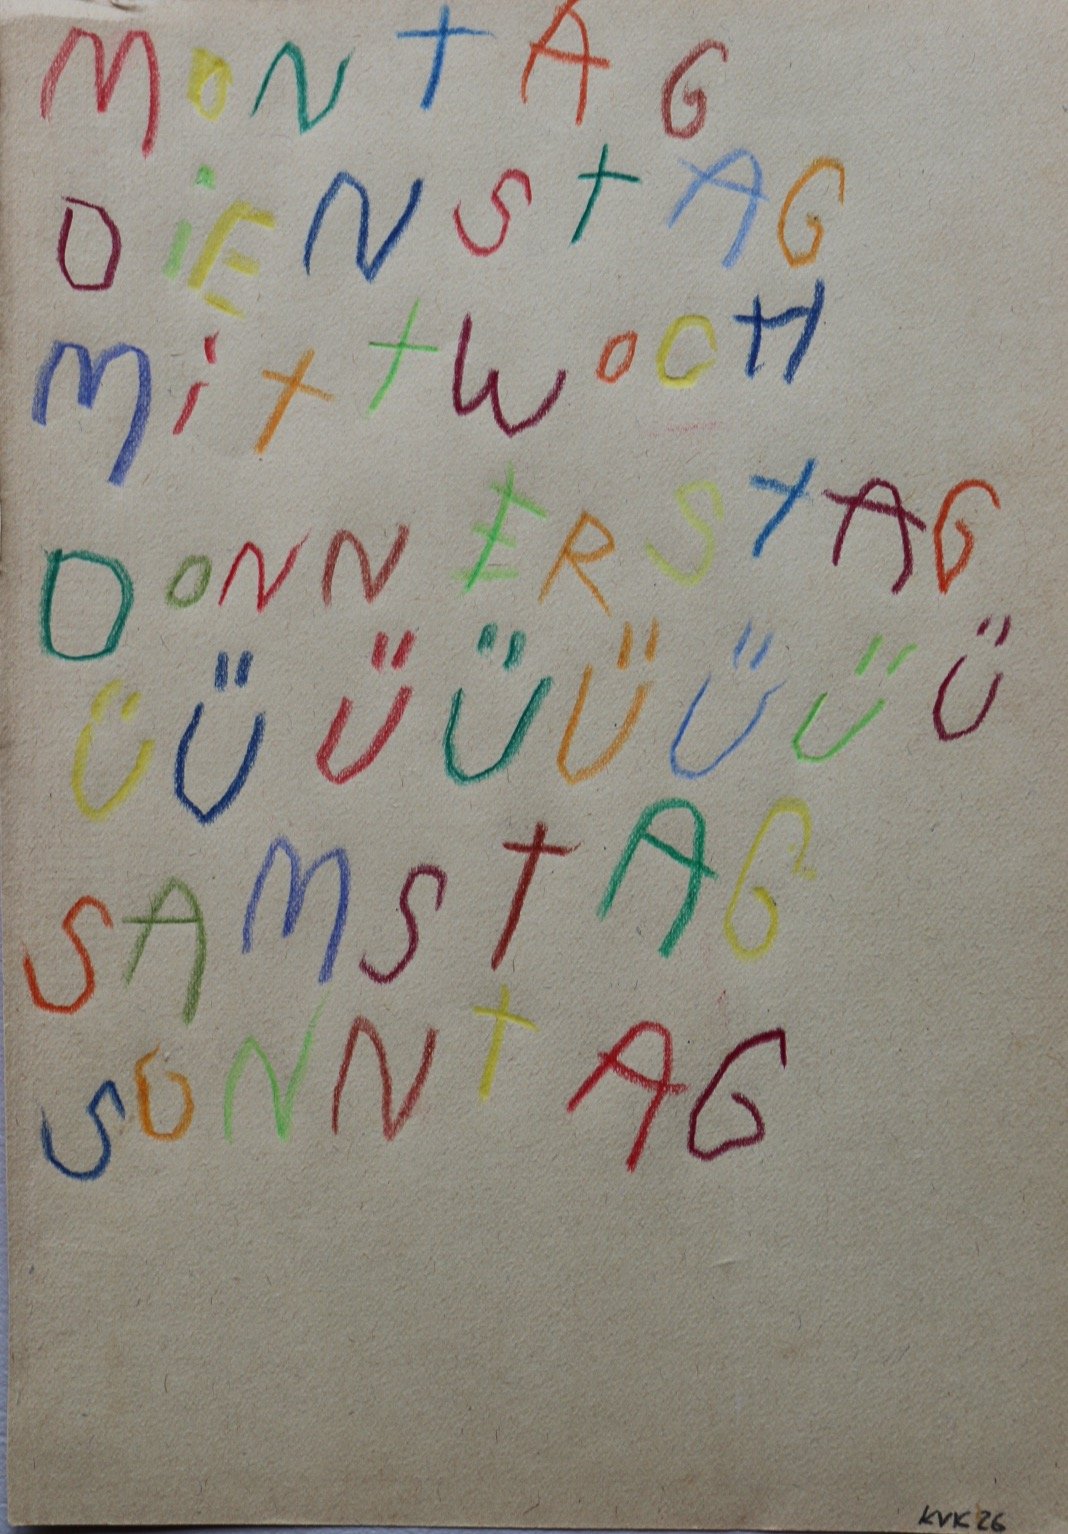 MONTAG
DiENSTAG
MiTTWOCH
DONNERSTAG
ÜÜÜÜÜÜÜÜ
SAMSTAG
SONNTAG
KVK 26